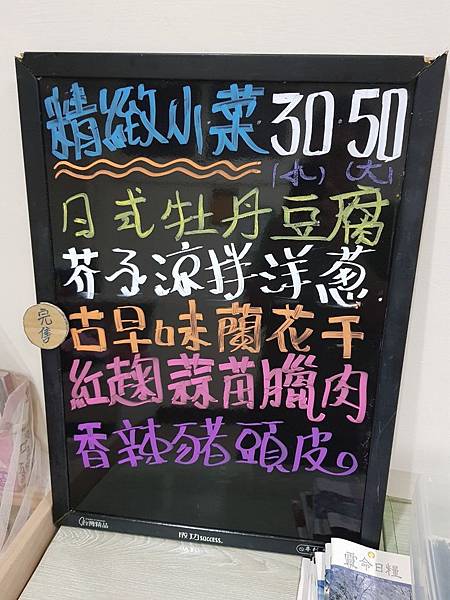 精緻小菜 30 50
(小) (大)
日式牡丹豆腐
芥子涼拌洋蔥
完售
古早味蘭花干
紅麴蒜苗臘肉
香辣豬頭皮。
台灣精品
成功 success.
靈命日糧